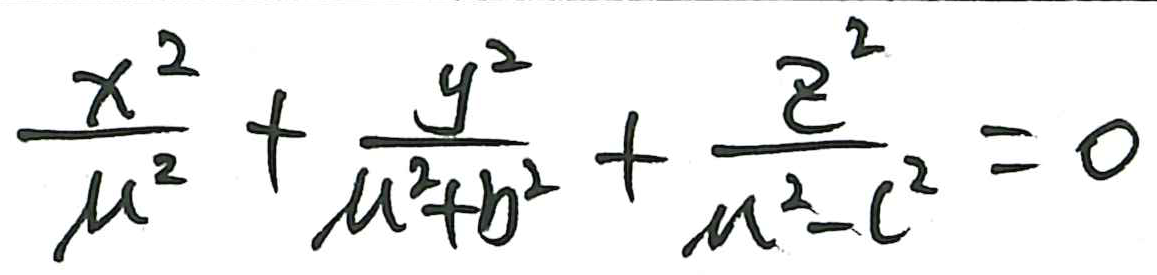 \frac{x^2}{\mu^2} + \frac{y^2}{\mu^2+b^2} + \frac{z^2}{\mu^2-c^2} = 0